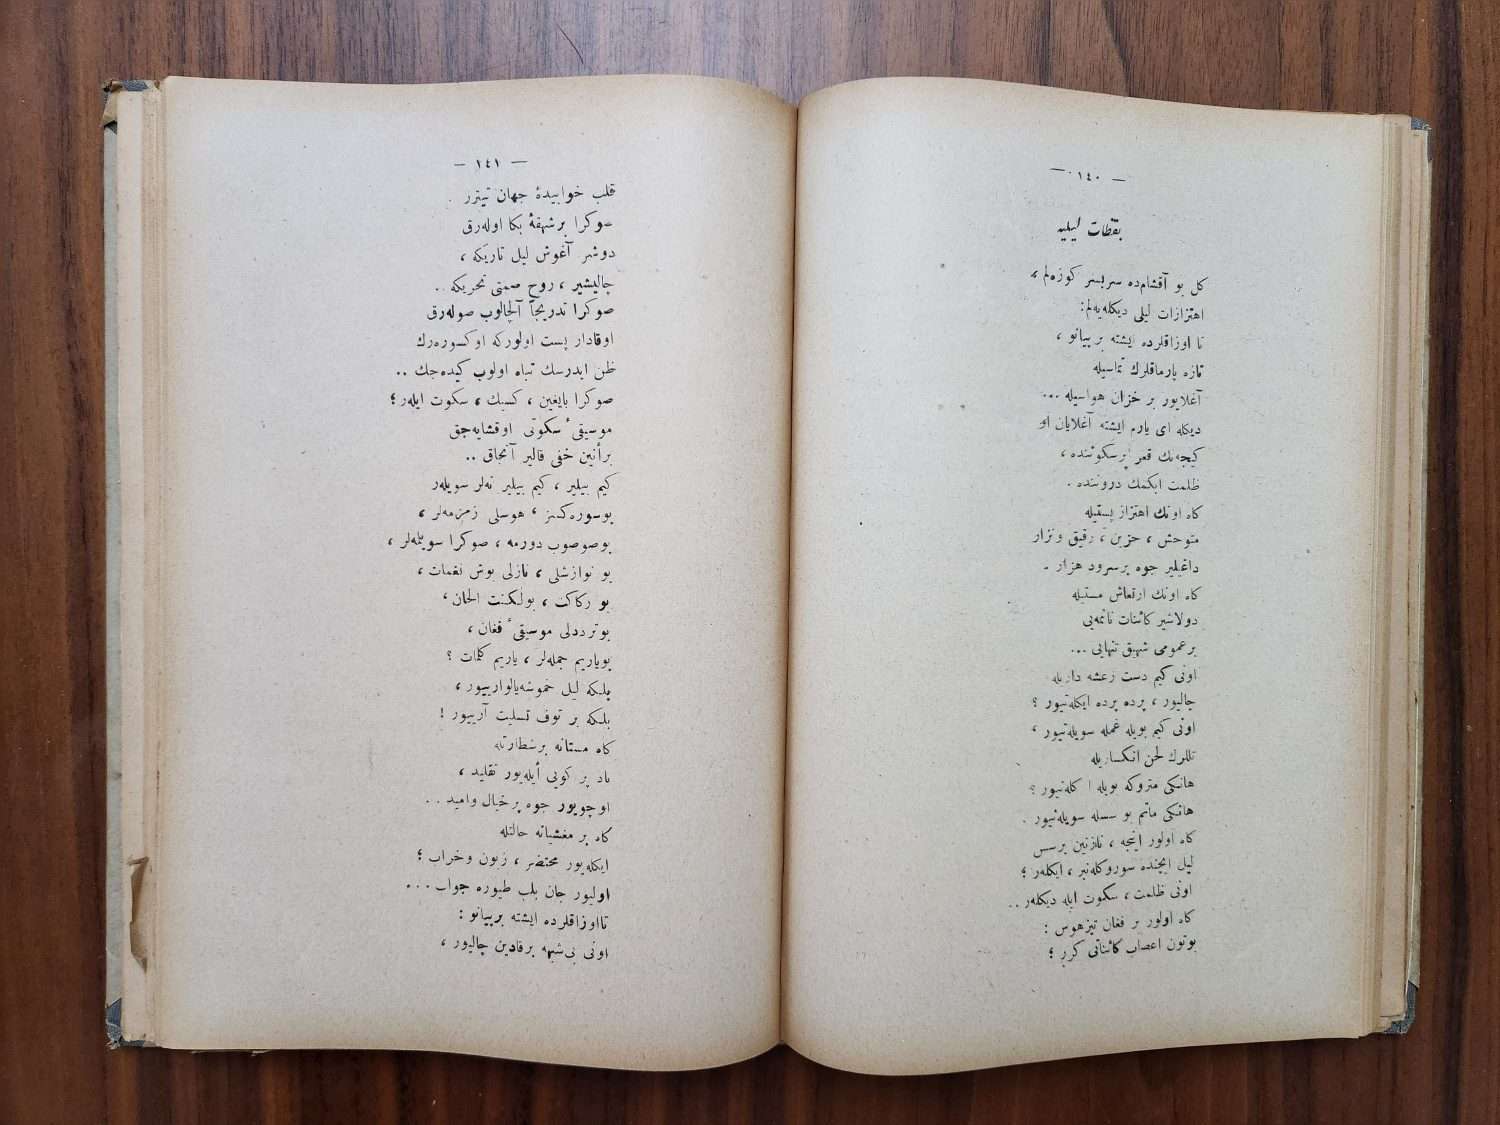 — ١٤٠ —
يقظات ليليه
كل بو آقشام‌ده سربسر كوزه‌لم ،
اهتزازات ليلى ديكله‌يه‌لم :
تا اوزاقلرده ايشته بر پيانو ،
تازه پارماقلرك تماسيله
آغلايور بر خزان هواسيله ...
ديكله اى يارم ايشته آغلايان او
كيجه‌نك قعر پرسكوتنده ،
ظلمت ابكمك دروننده .
كاه اونك اهتزاز پستيله
متوحش ، حزين ، رقيق ونزار
داغيلير جوه برسرود هزار .
كاه اونك ارتعاش مستيله
دولاشير كائنات نائمه‌يى
بر عمومى شهيق تنهايى ...
اونى كيم دست رعشه داريله
چاليور ، پرده پرده ايكله‌تيور ؟
اونى كيم بويله غمله سويله‌تيور ،
تللرك لحن انكساريله
هانكى متروكه بويله ا كله‌نيور ؟
هانكى ماتم بو سسله سويله‌نيور .
كاه اولور اينجه ، نازنين برسس
ليل ايچنده سوروكله‌نير ، ايكله‌ر ؛
اونى ظلمت ، سكوت ايله ديكله‌ر ..
كاه اولور بر فغان تيزهوس :
بوتون اعصاب كائناتى كرر ؛
— ١٤١ —
قلب خوابيدۀ جهان تيترر .
صوكرا برشهقۀ بكا اوله‌رق
دوشر آغوش ليل تاريكه ،
چاليشير ، روح صمتى تحريكه ..
صوكرا تدريجاً آلچالوب صوله‌رق
اوقادار پست اولوركه اوكسوره‌رك
ظن ايدرسك تباه اولوب كيده‌جك ..
صوكرا بايغين ، كسيك ، سكوت ايله‌ر ؛
موسيقىء سكوتى اوقشايه‌جق
برأنين خفى قالير آنجاق ..
كيم بيلير ، كيم بيلير نه‌لر سويله‌ر
بوسوره‌كسز ، هوسلى زمزمه‌لر ،
بوصوصوب دورمه ، صوكرا سويلمه‌لر ،
بو نوازشلى ، نازلى بوش نغمات ،
بو ركاكت ، بولكنت الحان ،
بوترددلى موسيقىء فغان ،
بويارم جمله‌لر ، يارم كلمات ؟
بلكه ليل خموشه‌يالوارييور ،
بلكه بر توف تسليت آرييور !
كاه مستانه برشطارتله
باد پر كويى أيله‌يور تقليد ،
اوچويور جوه پرخيال واميد ..
كاه بر مغشيانه حالتله
ايكله‌يور محتضر ، زبون وخراب ؛
اوليور جان بلب طيوره جواب ...
تااوزاقلرده ايشته برپيانو :
اونى بى‌شبهه برقادين چاليور ،